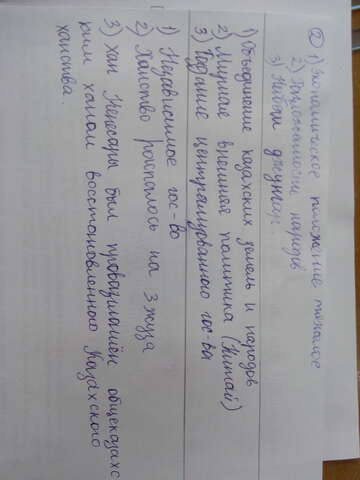 ② 1) Экономическое положение тяжёлое
2) Разрозненность народов
3) Набеги джунгар.
1) Объединение казахских земель и народов
2) Мирная внешняя политика (Китай)
3) Создание централизованного гос-ва
1) Независимое гос-во
2) Ханство распалось на 3 жуза
3) хан Кенесары был провозглашён общеказахс
ким ханом восстановленного Казахского
ханства.